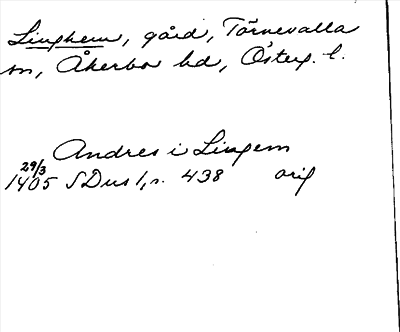 Linghem, gård, Törnevalla
sn, Åkerbo hd, Östug. l.
Andres i Lingem
29/3
1405 SDns 1, s. 438 orig